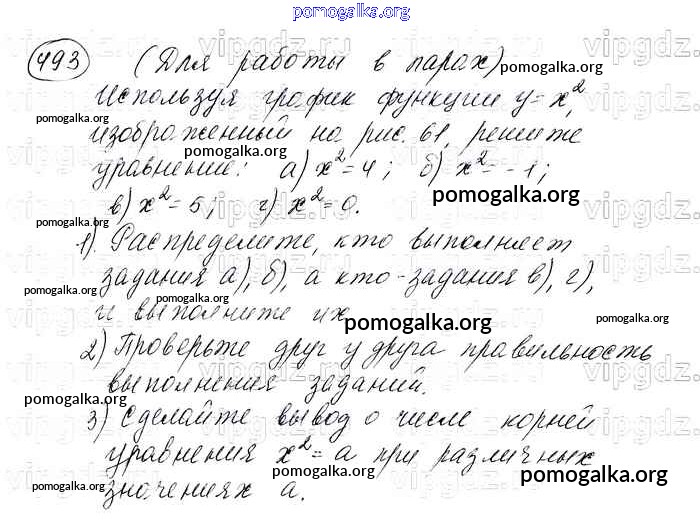 pomogalka.org
493 (Для работы в парах)
pomogalka.org
Используя график функции y = x²,
pomogalka.org
изображенный на рис. 61, решите
pomogalka.org
уравнение: а) x² = 4; б) x² = -1;
pomogalka.org
в) x² = 5; г) x² = 0.
pomogalka.org
1). Распределите, кто выполняет
задания а), б), а кто - задания в), г),
pomogalka.org
pomogalka.org
и выполните их.
pomogalka.org
pomogalka.org
2) Проверьте друг у друга правильность
выполнения заданий.
pomogalka.org
3) Сделайте вывод о числе корней
уравнения x² = a при различных
pomogalka.org
pomogalka.org
значениях a.
pomogalka.org